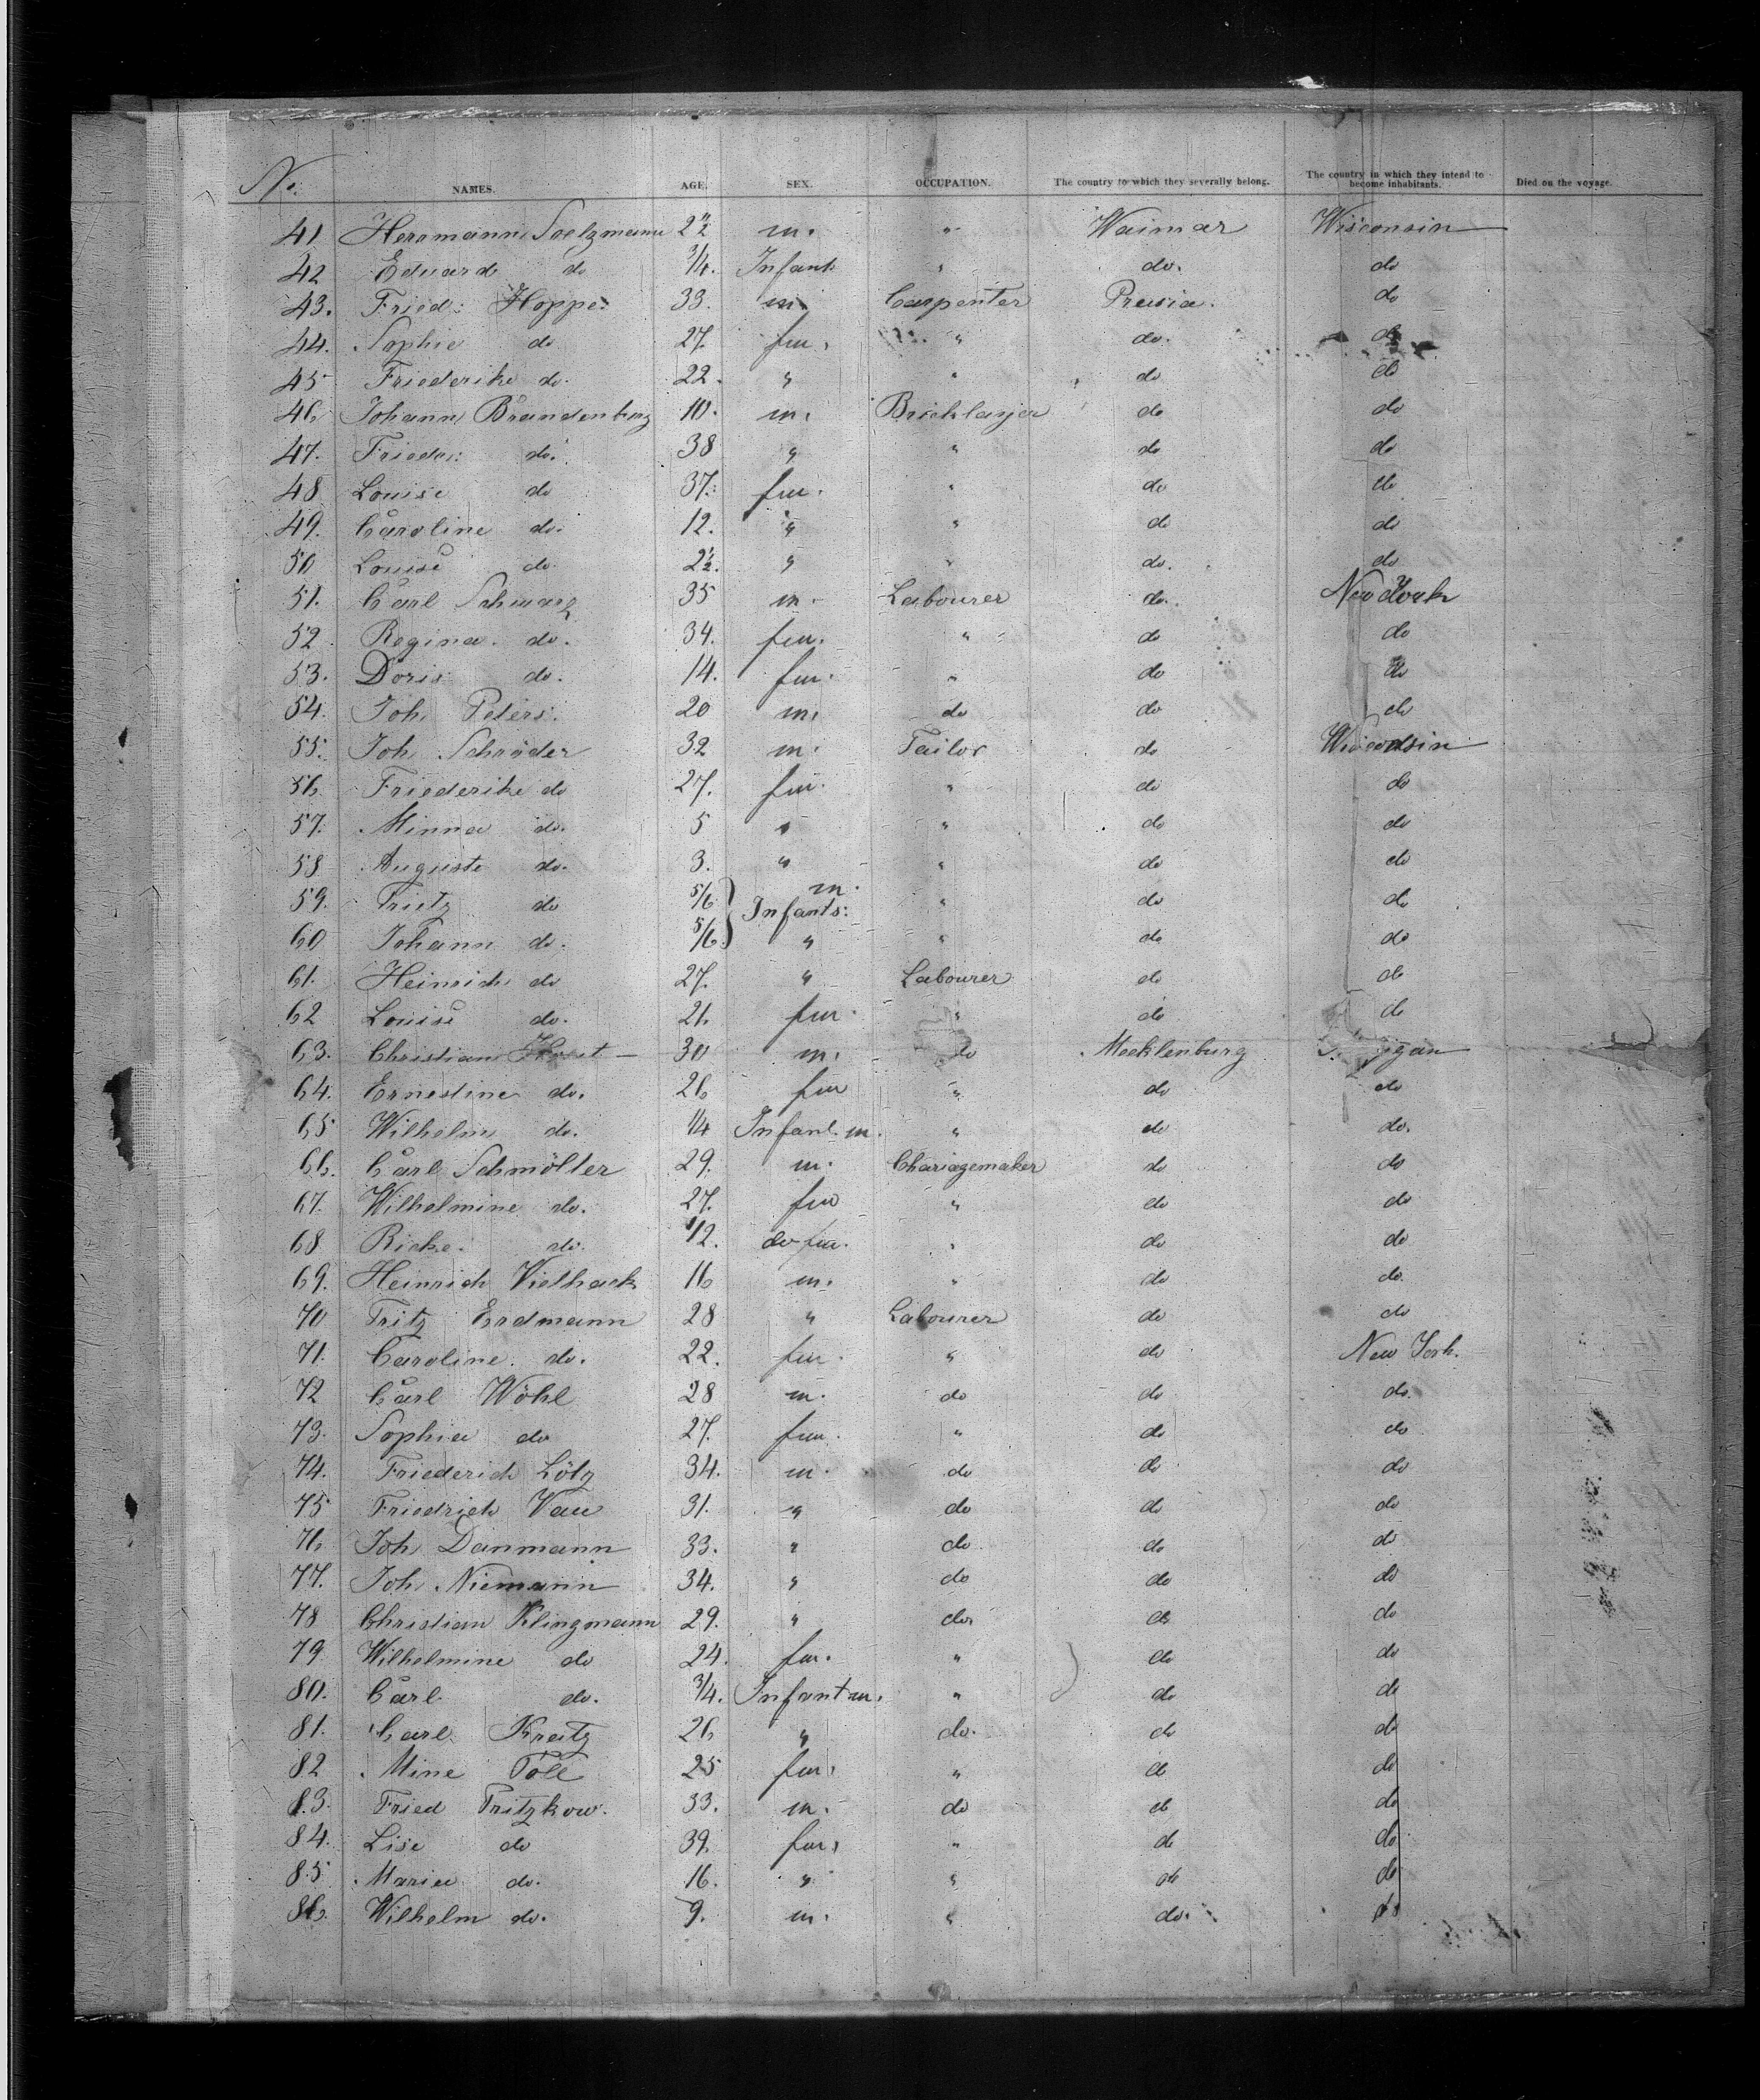 No. NAMES. AGE. SEX. OCCUPATION. The country to which they severally belong. The country in which they intend to become inhabitants. Died on the voyage.
41 Herrmann Soelzmann 2 1/2 m. " Waimar Wisconsin
42 Eduard do 3/4. Infant " do. do
43. Fried: Hoppe: 33. m. Carpenter Preusia. do
44. Sophie do 27. fm. " do. do
45 Friederike do. 22. " " do do
46 Johann Brandenburg 10. m. Bricklayer do do
47. Frieder: do. 38 " " do do
48 Louise do 37. fm. " do do
49. Caroline do. 12. " " do do
50 Louise do. 2 1/2. " " do. do
51. Carl Schwarz 35 m. Labourer do. New York
52 Regina. do. 34. fm. " do do
53. Doris do. 14. fm. " do do
54. Joh. Peters. 20 m. do do do
55. Joh. Schröder 32 m. Tailor do Wisconsin
56 Friederike do 27. fm. " do do
57. Minna do. 5 " " do do
58 Auguste do. 3. " " do do
59. Fritz do 5/6 m. Infants: " do do
60 Johann do. 5/6 " " do do
61. Heinrich do 27. " Labourer do do
62 Louise do. 26 fm. " do do
63. Christian 30 m. do Mecklenburg
64. Ernestine do. 26 fm " do do
65 Wilhelm do. 1/4 Infant. m. " do do.
66. Carl Schmölter 29. m. Chariagemaker do do
67. Wilhelmine do. 27. fm " do do
68 Rieke. do. 1/2. do fm. " do do
69. Heinrich Vielhack 16 m. " do do.
70 Fritz Erdmann 28 " Labourer do do
71. Caroline. do. 22. fm. " do New York.
72 Carl Wöhl 28 m. do do do.
73. Sophie do 27. fm. " do do
74. Friederich Lötz 34. m. do do do
75 Friedrich Vau 31. " do do do
76 Joh. Danmann 33. " do do do
77. Joh. Niemann 34. " do do do
78 Christian Klingmann 29. " do do do
79. Wilhelmine do 24. fm. " do do
80. Carl do. 3/4. Infant m. " do do
81. Carl Kratz 26 " do. do do
82 Mine Töll 25 fm. " do do
83. Fried Fritzkow. 33. m. do do do
84. Lise do 39. fm. " do do
85 Marie do. 16. " " do do
86. Wilhelm do. 9. m. " do. do